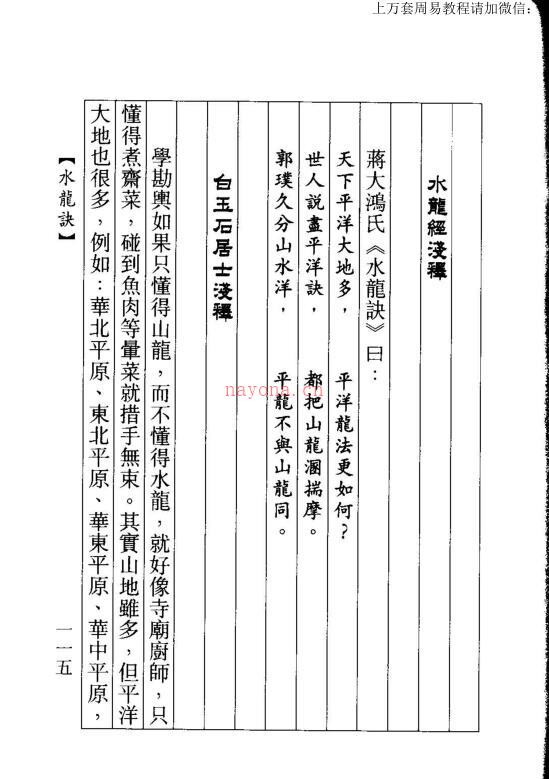 上万套周易教程请加微信：
水龍經淺釋
蔣大鴻氏《水龍訣》曰：
天下平洋大地多，　平洋龍法更如何？
世人説盡平洋訣，　都把山龍溷揣摩。
郭璞久分山水洋，　平龍不與山龍同。
白玉石居士淺釋
學勘輿如果只懂得山龍，而不懂得水龍，就好像寺廟廚師，只
懂得煮齋菜，碰到魚肉等暈菜就措手無束。其實山地雖多，但平洋
大地也很多，例如：華北平原、東北平原、華東平原、華中平原，
【水龍訣】
一一五
nayona.cn